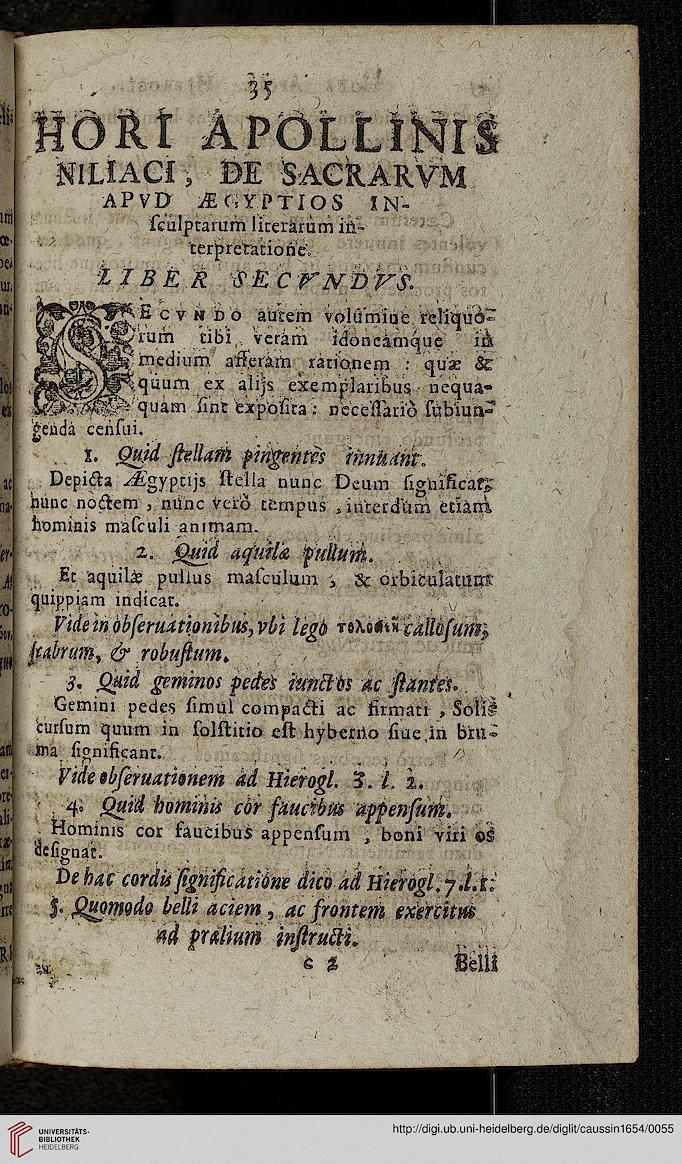 35
HORI APOLLINIS
NILIACI, DE SACRARVM
APVD ÆGYPTIOS IN-
ſculptarum literarum in-
terpretatione.
LIBER SECVNDVS.
SECVNDO autem volumine reliquo-
rum tibi veram idoneamque in
medium afferam rationem : quæ &
quum ex alijs exemplaribus nequa-
quam ſint expoſita : neceſſariò ſubiun-
genda cenſui.
1. Quid ſtellam pingentes innuant.
Depicta Ægyptijs ſtella nunc Deum ſignificat,
nunc noctem, nunc verò tempus, interdum etiam
hominis maſculi animam.
2. Quid aquilæ pullum.
Et aquilæ pullus maſculum, & orbiculatum
quippiam indicat.
Vide in obſeruationibus, vbi lego calloſum,
ſcabrum, & robuſtum.
3. Quid geminos pedes iunctos ac ſtantes.
Gemini pedes ſimul compacti ac firmati, Solis
curſum quum in ſolſtitio eſt hyberno ſiue in bru-
ma ſignificant.
Vide obſeruationem ad Hierogl. 3. l. 2.
4. Quid hominis cor faucibus appenſum.
Hominis cor faucibus appenſum, boni viri os
deſignat.
De hac cordis ſignificatione dico ad Hierogl. 7. l. 1.
5. Quomodo belli aciem, ac frontem exercitus
ad prælium inſtructi.
c 2 Belli
UNIVERSITÄTS-
BIBLIOTHEK
HEIDELBERG
http://digi.ub.uni-heidelberg.de/diglit/caussin1654/0055